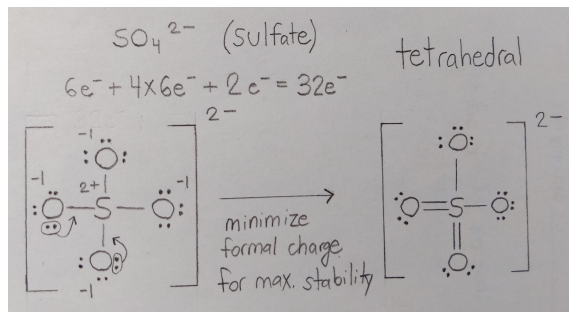 SO₄²⁻ (sulfate)
tetrahedral
6e⁻ + 4×6e⁻ + 2e⁻ = 32e⁻
2-
-1
O
-1
2+
-1
O S O
O
-1
minimize
formal charge
for max. stability
2-
O
O S O
O